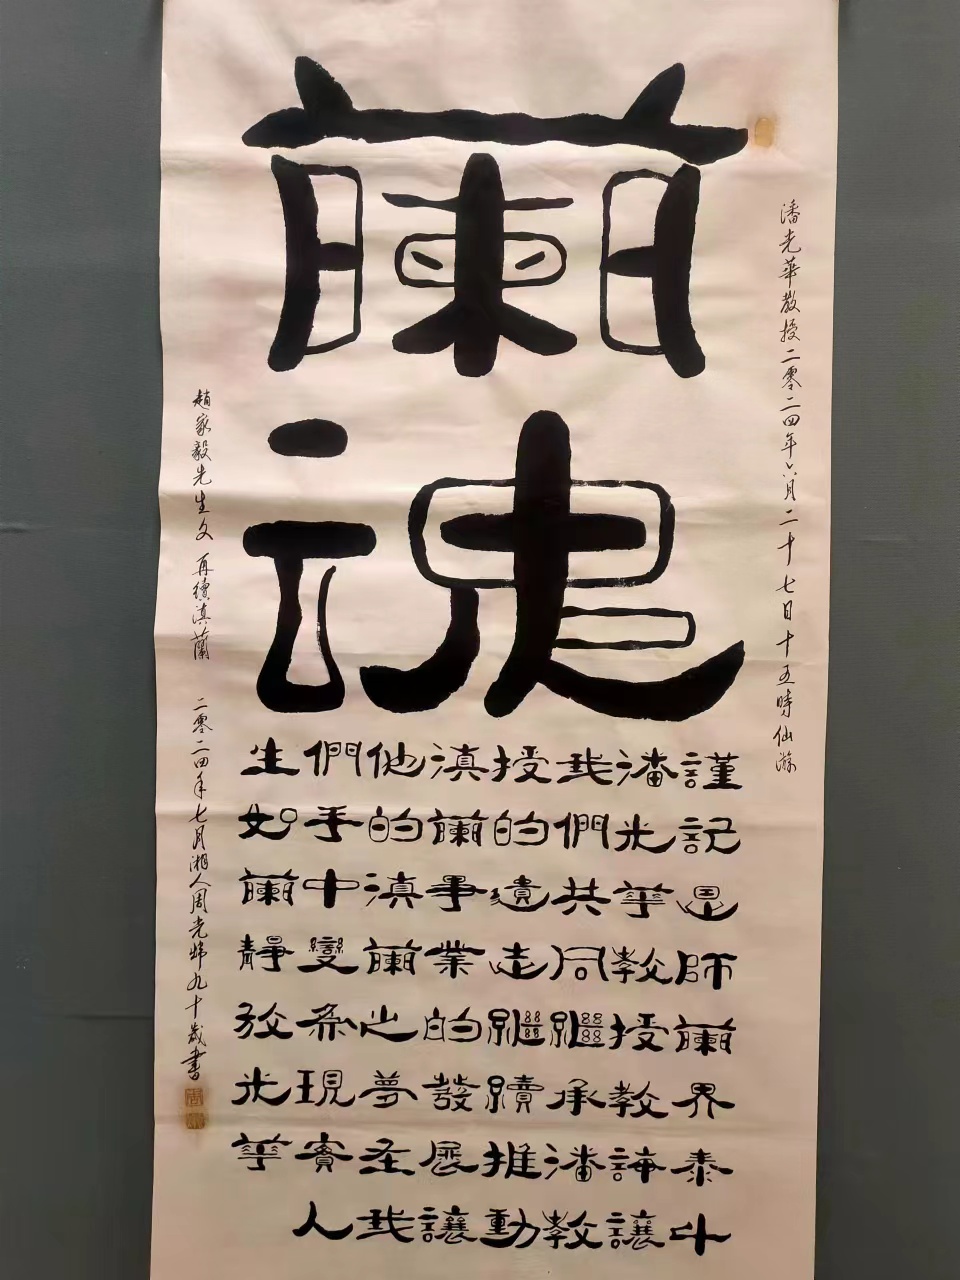 蘭魂
潘光華教授二零二四年六月二十七日十五時仙游
謹記恩師蘭界泰斗
潘光華教授教誨讓
我們共同繼承潘教
授的遺志繼續推動
滇蘭事業的發展讓
他的滇蘭之夢在我
們手中變為現實人
生如蘭靜放光華
趙家毅先生文 再續滇蘭 二零二四年七月湘人周光九十歲書